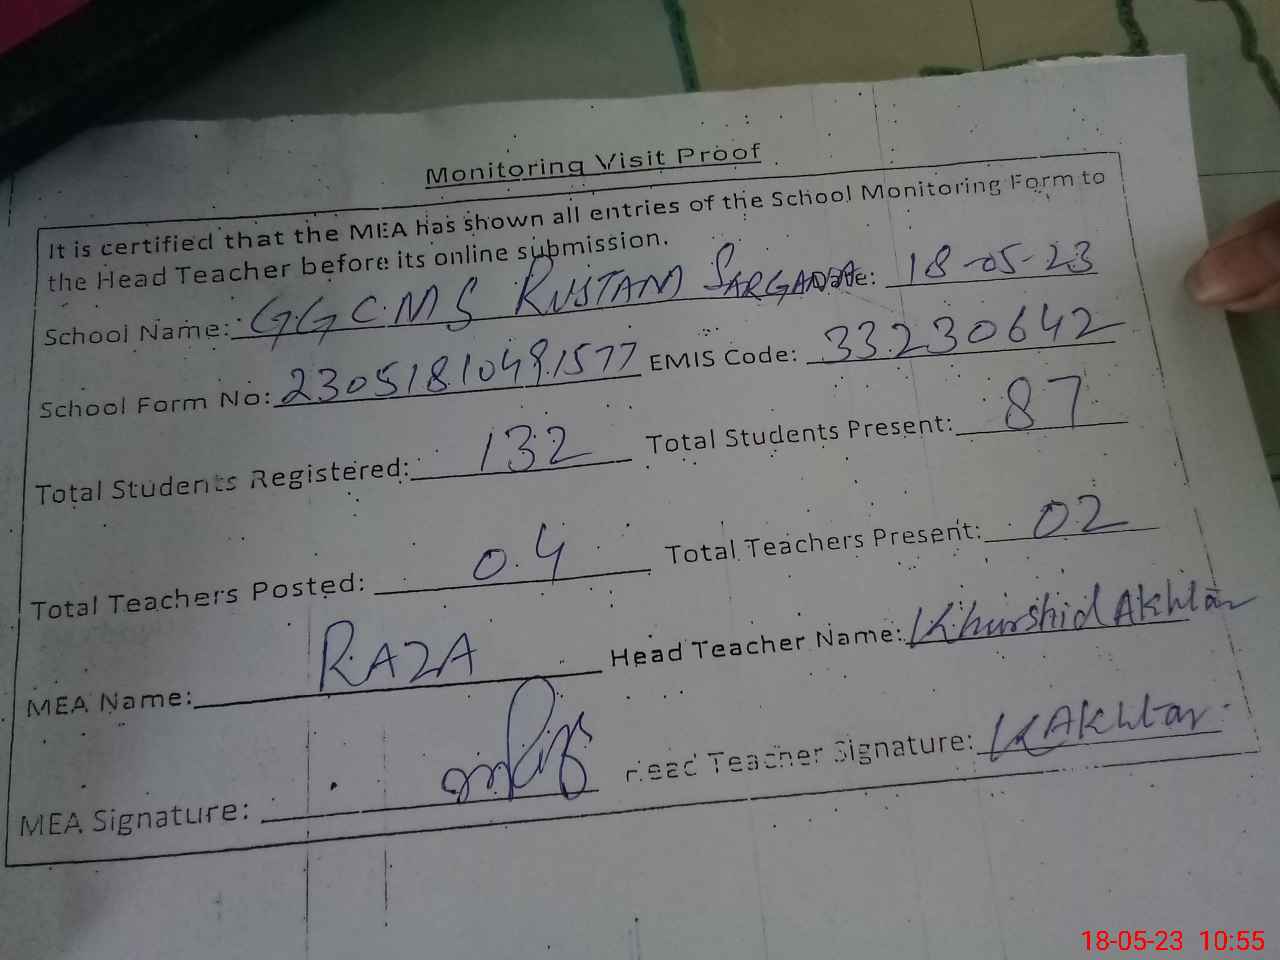 Monitoring Visit Proof
It is certified that the MEA has shown all entries of the School Monitoring Form to
the Head Teacher before its online submission.
School Name: GGCMS RUSTAM SARGANA Date: 18-05-23
School Form No: 23051810491577 EMIS Code: 33230642
Total Students Registered: 132 Total Students Present: 87
Total Teachers Posted: 04 Total Teachers Present: 02
MEA Name: RAZA Head Teacher Name: Khurshid Akhtar
MEA Signature: Head Teacher Signature: KAkhtar
18-05-23 10:55